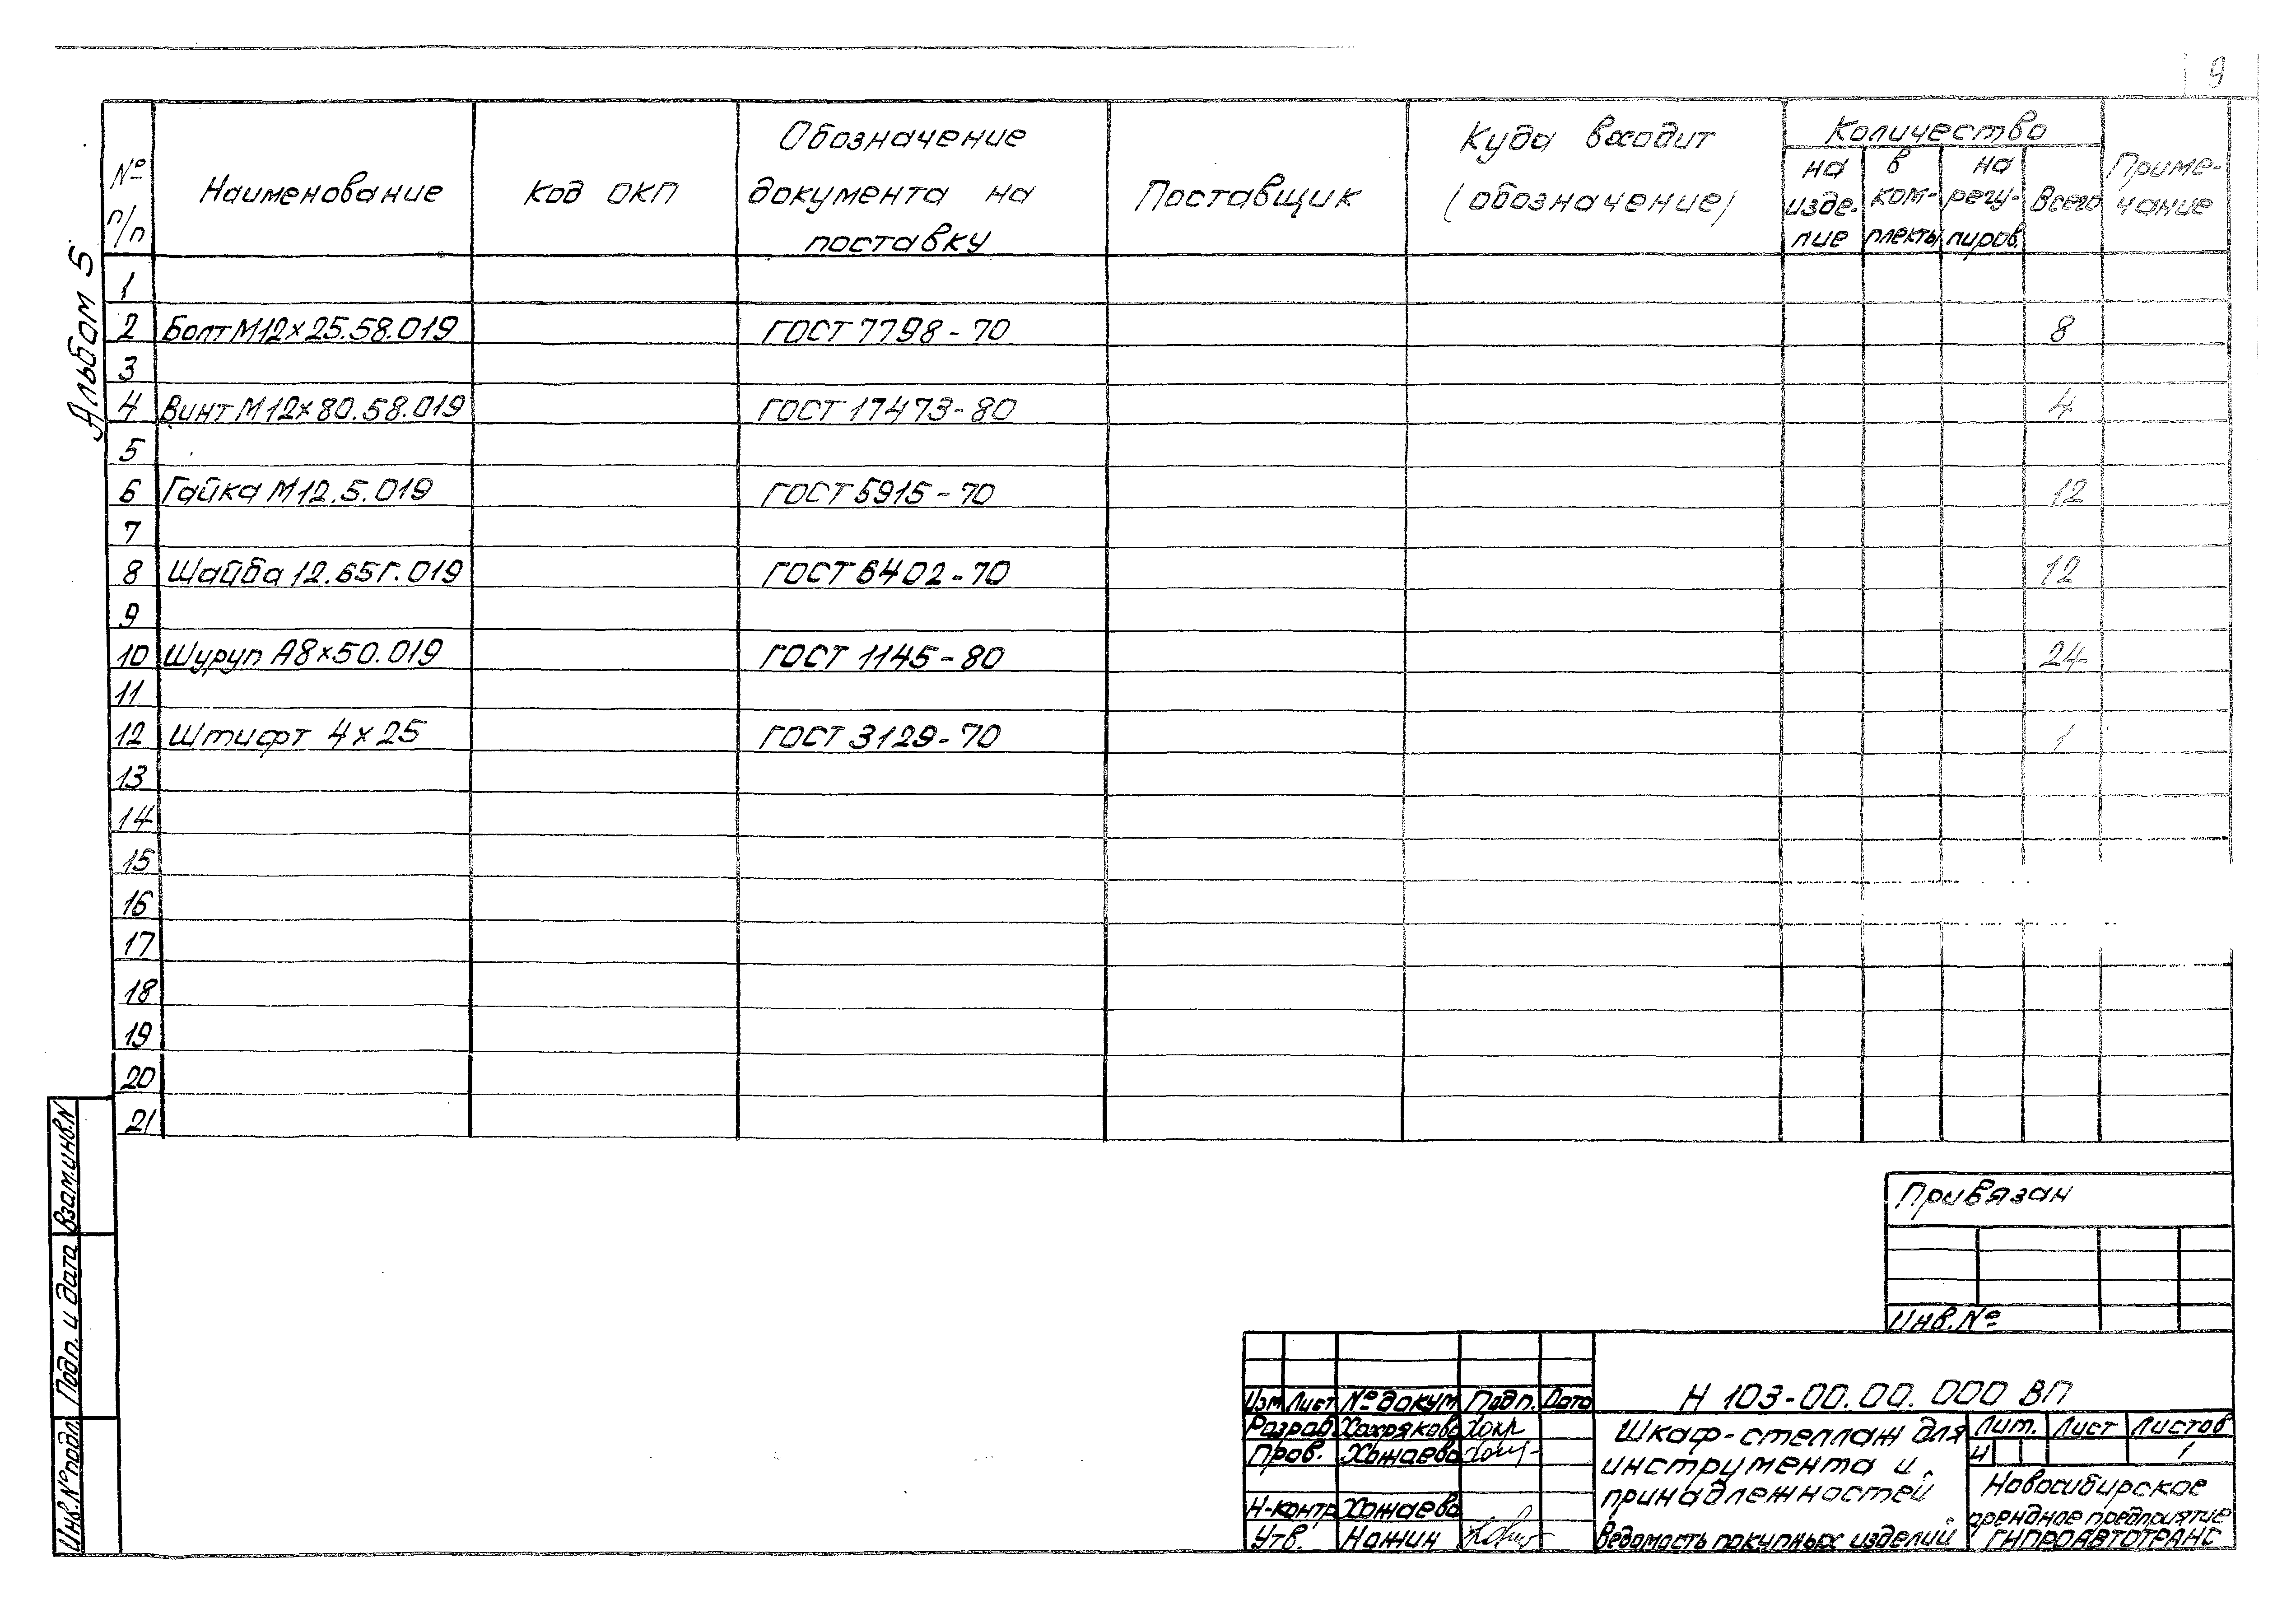 9
Альбом 5
№ п/п
Наименование
Код ОКП
Обозначение документа на поставку
Поставщик
Куда входит (обозначение)
Количество
на изде- лие
в ком- плекты
на регу- лиров.
Всего
Приме- чание
1
2 Болт М12×25.58.019 ГОСТ 7798-70 8
3
4 Винт М12×80.58.019 ГОСТ 17473-80 4
5
6 Гайка М12.5.019 ГОСТ 5915-70 12
7
8 Шайба 12.65Г.019 ГОСТ 6402-70 12
9
10 Шуруп А8×50.019 ГОСТ 1145-80 24
11
12 Штифт 4×25 ГОСТ 3129-70 1
13
14
15
16
17
18
19
20
21
Взам.инв.N
Подп. и дата
Инв.№подл.
Привязан
Инв.№
Изм Лист №докум Подп. Дата
Н 103-00.00.000 ВП
Разраб. Хохрякова Хохр
Пров. Хожаева
Н-контр Хожаева
Утв. Нажин
Шкаф-стеллаж для
инструмента и
принадлежностей
Ведомость покупных изделий
Лит. Лист Листов
И 1
Новосибирское
арендное предприятие
ГИПРОАВТОТРАНС